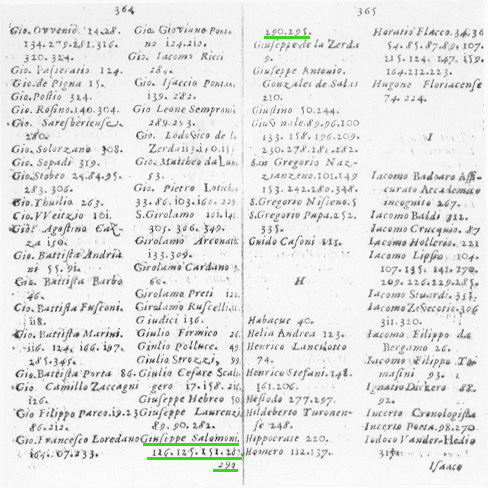 364
Gio. Ovvenio 14.28.
134.279.281.316.
320.324.
Gio. Passeratio 124.
Gio. de Pigna 15.
Gio. Postio 324.
Gio. Rosino. 140.304.
Gio. Saresberiense
280.
Gio. Solorzano 308.
Gio. Sopadi 319.
Gio. Stobeo 24.84.95.
283.306.
Gio. Thuilio 263.
Cio. VVeitzio 161.
Gio. Agostino Caz
za 150.
Gio. Battista Andria
ni 55.91.
Gio. Battista Barbo
46.
Gio. Battista Fusconi.
118.
Gio. Battista Marini.
116. 124. 166. 197.
285.345.
Gio. Battista Porta 86.
Gio. Camillo Zaccagni
126.
Gio Filippo Pareo. 19.23
86.212.
Gio. Francesco Loredano
164.
Gio. Gioviano Ponta
no 124.210.
Gio. Iacomo Ricci
Gio. Isaccio Pontan.
139. 282.
Gio Leone Semproni
289.253.
Gio. Lodovico de la
Zerda
Gio. Mattheo da Luna
53.
Gio. Pietro Lotich.
33.86.103.160.
S. Girolamo
305.306.349.
Girolamo Arconati
133.309.
Girolamo Cardano
60.
Girolamo Preti
Girolamo Ruscelli.
Giudici 136.
Giulio Firmico
Giulio Polluce
Giulio Strozzi,
Giulio Cesare Scali
gero 17.158.
Giuseppe Hebreo
Giuseppe Laurenzi
89.90.282.
Giuseppe Salomoni,
116.125.251.287
290
365
290.295.
Giuseppe de la Zerda
9.
Giuseppe Antonio.
Gonzales de Salas
210.
Giustino 50.244.
Giuvenale. 89.96.100
133. 158. 196.209.
230.278.281.282.
San Gregorio Naz-
zianzeno. 101.149
153.242.280.348.
S. Gregorio Nisseno. 5
S. Gregorio Papa. 252.
335.
Guido Casoni
H
Habacuc 40.
Helia Andrea 123.
Henrico Lancilotto
74.
Henrico Stefani. 148.
161.206.
Hesiodo 277.297.
Hildeberto Turonen-
se 248.
Hippocrate 220.
Homero 112.137.
Horatio Flacco. 34.36
54.85.87.89.107.
115.124.147.159.
164.212.223.
Hugono Floriacense
74.224.
I
Iacomo Badoaro Assi-
curato Accademico
incognito 267.
Iacomo Baldi 312.
Iacomo Crucquio. 87
Iacomo Hollerio. 221
Iacomo Lipsio 104.
107.135.141.170.
209.226.229.285.
Iacomo Stuardi.
Iacomo Zevecotio. 306
311.320.
Iacomo Filippo da
Bergamo 26.
Iacomo Filippo To
masini 93.
Ignatio Dickero 88.
92.
Incerto Cronologista
Incerto Poeta. 98.270
Iodoco Vander-Hedio
Isaaco